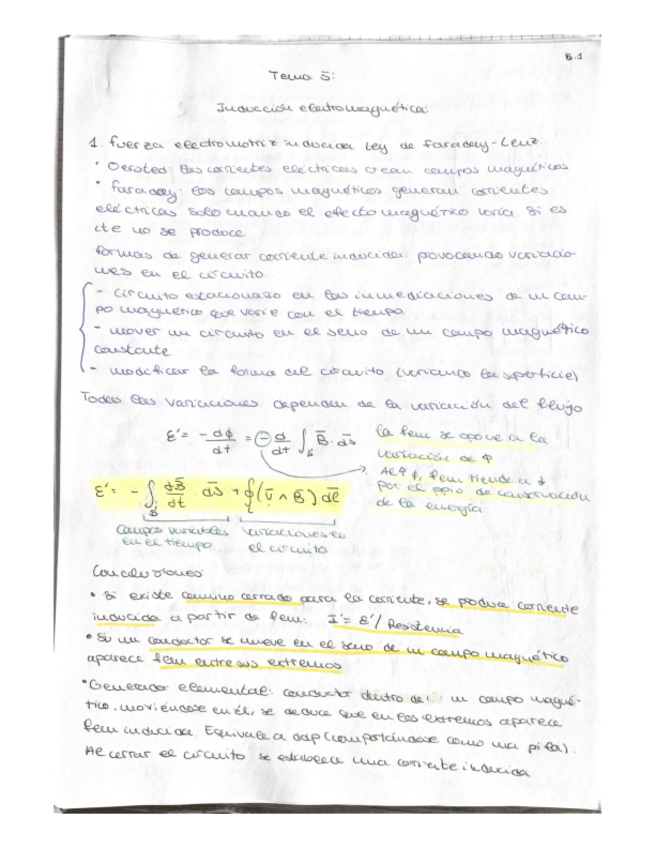 5.1
Tema 5:
Inducción electromagnética:
1. fuerza electromotriz inducida Ley de Faraday-Lenz.
· Oersted: las corrientes eléctricas crean campos magnéticos
· Faraday: los campos magnéticos generan corrientes
eléctricas solo cuando el efecto magnético varía si es
cte no se produce
formas de generar corriente inducida: povocando variacio-
nes en el circuito.
- circuito estacionario en las inmediaciones de un cam-
po magnético que varíe con el tiempo
- mover un circuito en el seno de un campo magnético
constante
- modificar la forma del circuito (variando la superficie)
Todas las variaciones dependen de la variación del flujo
ε' = - dϕ/dt = - d/dt ∫s B̄ · ds̄
la fem se opone a la
variación de ϕ
Al ↑ ϕ, fem tiende a ↓
por el ppio de conservación
de la energía
ε' = - ∫s dB̄/dt · ds̄ + ∮(v̄ ∧ B̄) dl̄
campos variables
en el tiempo
variaciones en
el circuito
Conclusiones:
• Si existe camino cerrado para la corriente, se produce corriente
inducida a partir de fem: I' = ε' / Resistencia
• Si un conductor se mueve en el seno de un campo magnético
aparece fem entre sus extremos
• Generador elemental: conductor dentro de un campo magné-
tico, moviéndose en él, se deduce que en los extremos aparece
fem inducida. Equivale a ddp (comportándose como una pila).
Al cerrar el circuito se establece una corriente inducida